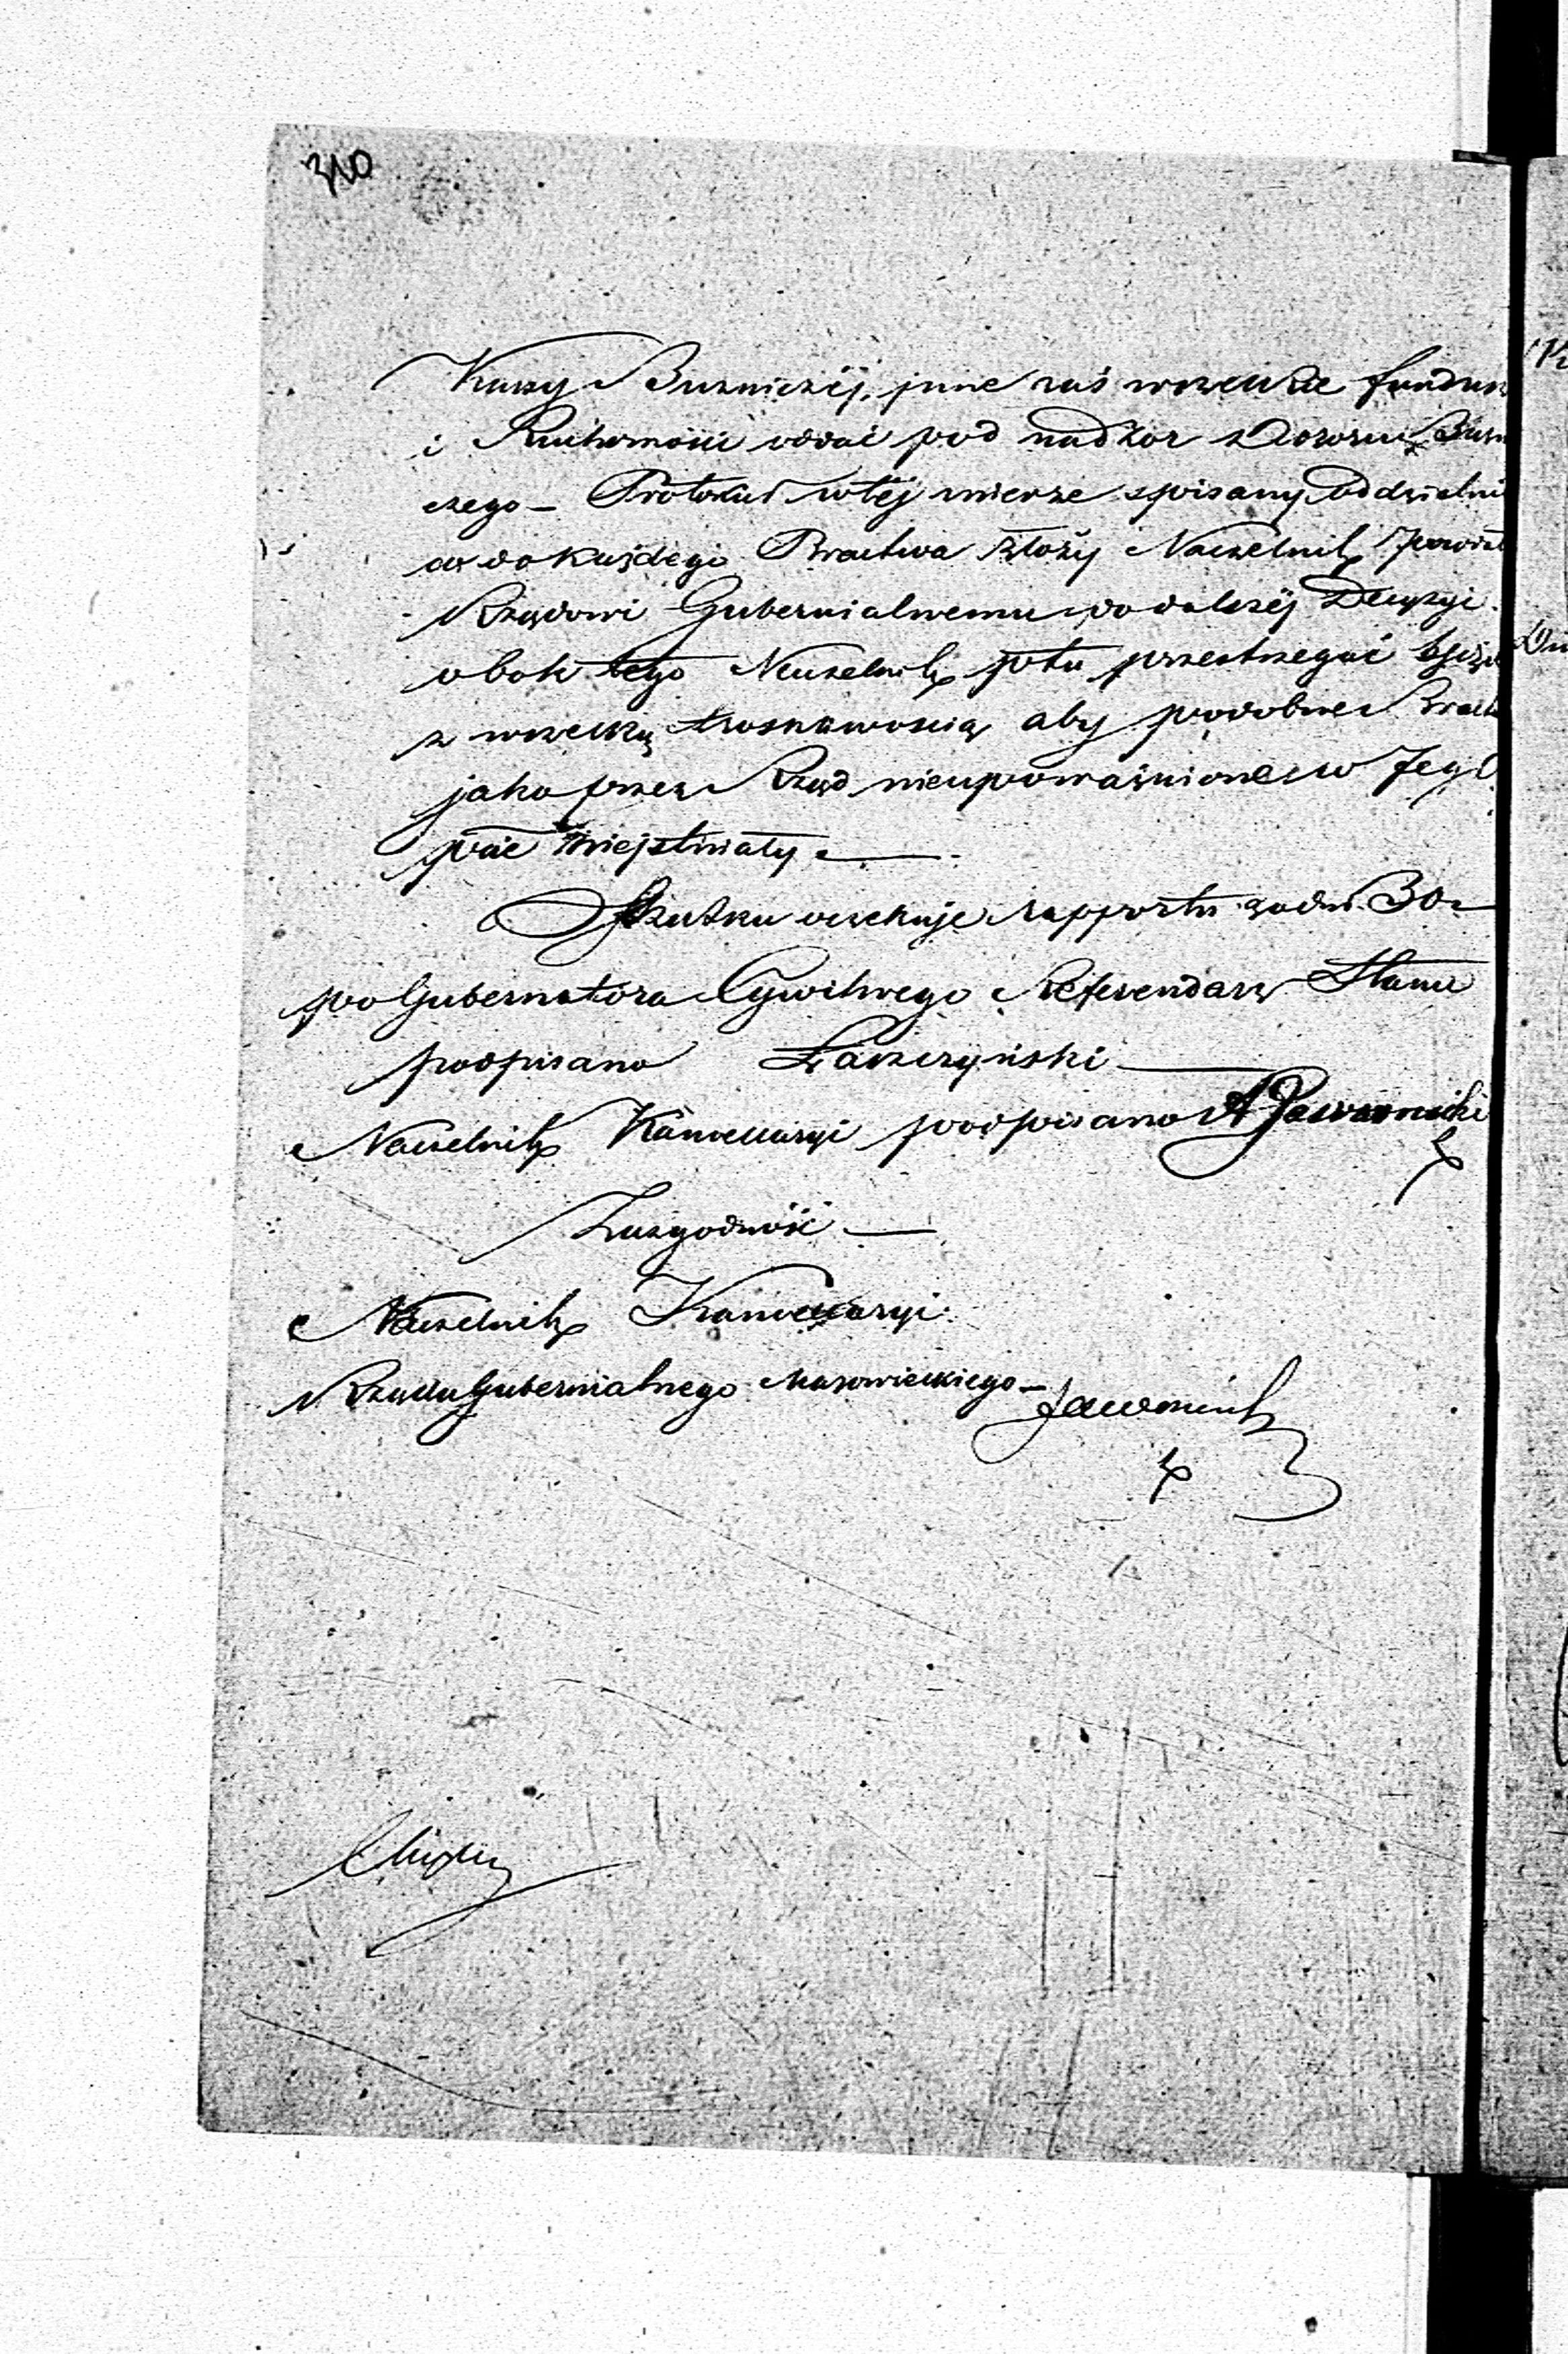 310
Kassy Bużniczéj, inne zaś wszelkie fundus
i Ruchomości oddać pod nadzór Dozoru Bużn
czego — Protokuł w téj mierze spisany oddzielni
co do każdego Bractwa złoży Naczelnik Powiat
Rządowi Gubernialnemu do dalszéj Decyzyi.
obok tego Naczelnik ptu przestrzegać będzie
z wszelką troskliwością aby podobne Bract
jako przez Rząd nieupoważnione w Jego
pcie miejsca niemiały —
Skutku oczekuje rapportu za dni 30 —
po Gubernatora Cywilnego Referendarz Stanu
podpisano Łaszczyński —
Naczelnik Kancellaryi podpisano A Jawornicki
Za zgodność —
Naczelnik Kancellaryi
Rządu Gubernialnego Mazowieckiego — Jawornicki